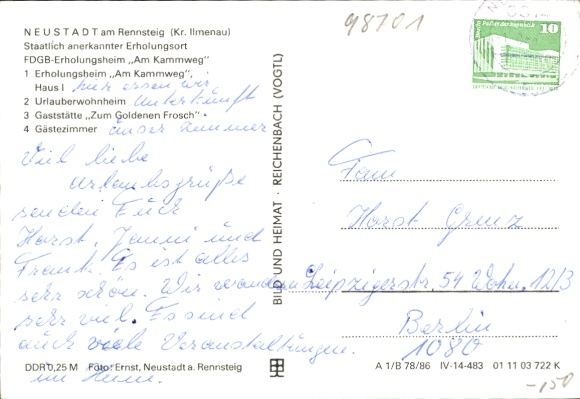 NEUSTADT am Rennsteig (Kr. Ilmenau)
Staatlich anerkannter Erholungsort
FDGB-Erholungsheim „Am Kammweg"
1 Erholungsheim „Am Kammweg",
Haus I hier essen wir
2 Urlauberwohnheim Unterkünft
3 Gaststätte „Zum Goldenen Frosch"
4 Gästezimmer unser Zimmer
Viel liebe
Urlaubsgrüße
senden Euch
Horst, Janni und
Frank. Es ist alles
sehr schön. Wir wandern
sehr viel. Es sind
auch viele Veranstaltungen.
im Heim.
DDR 0,25 M Foto: Ernst, Neustadt a. Rennsteig
BILD UND HEIMAT · REICHENBACH (VOGTL)
98701
10
Berlin Palast der Republik
Fam
Horst Grenz
Leipzigerstr. 54 Wohn. 12/3
Berlin
1080
A 1/B 78/86 IV-14-483 01 11 03 722 K
-150